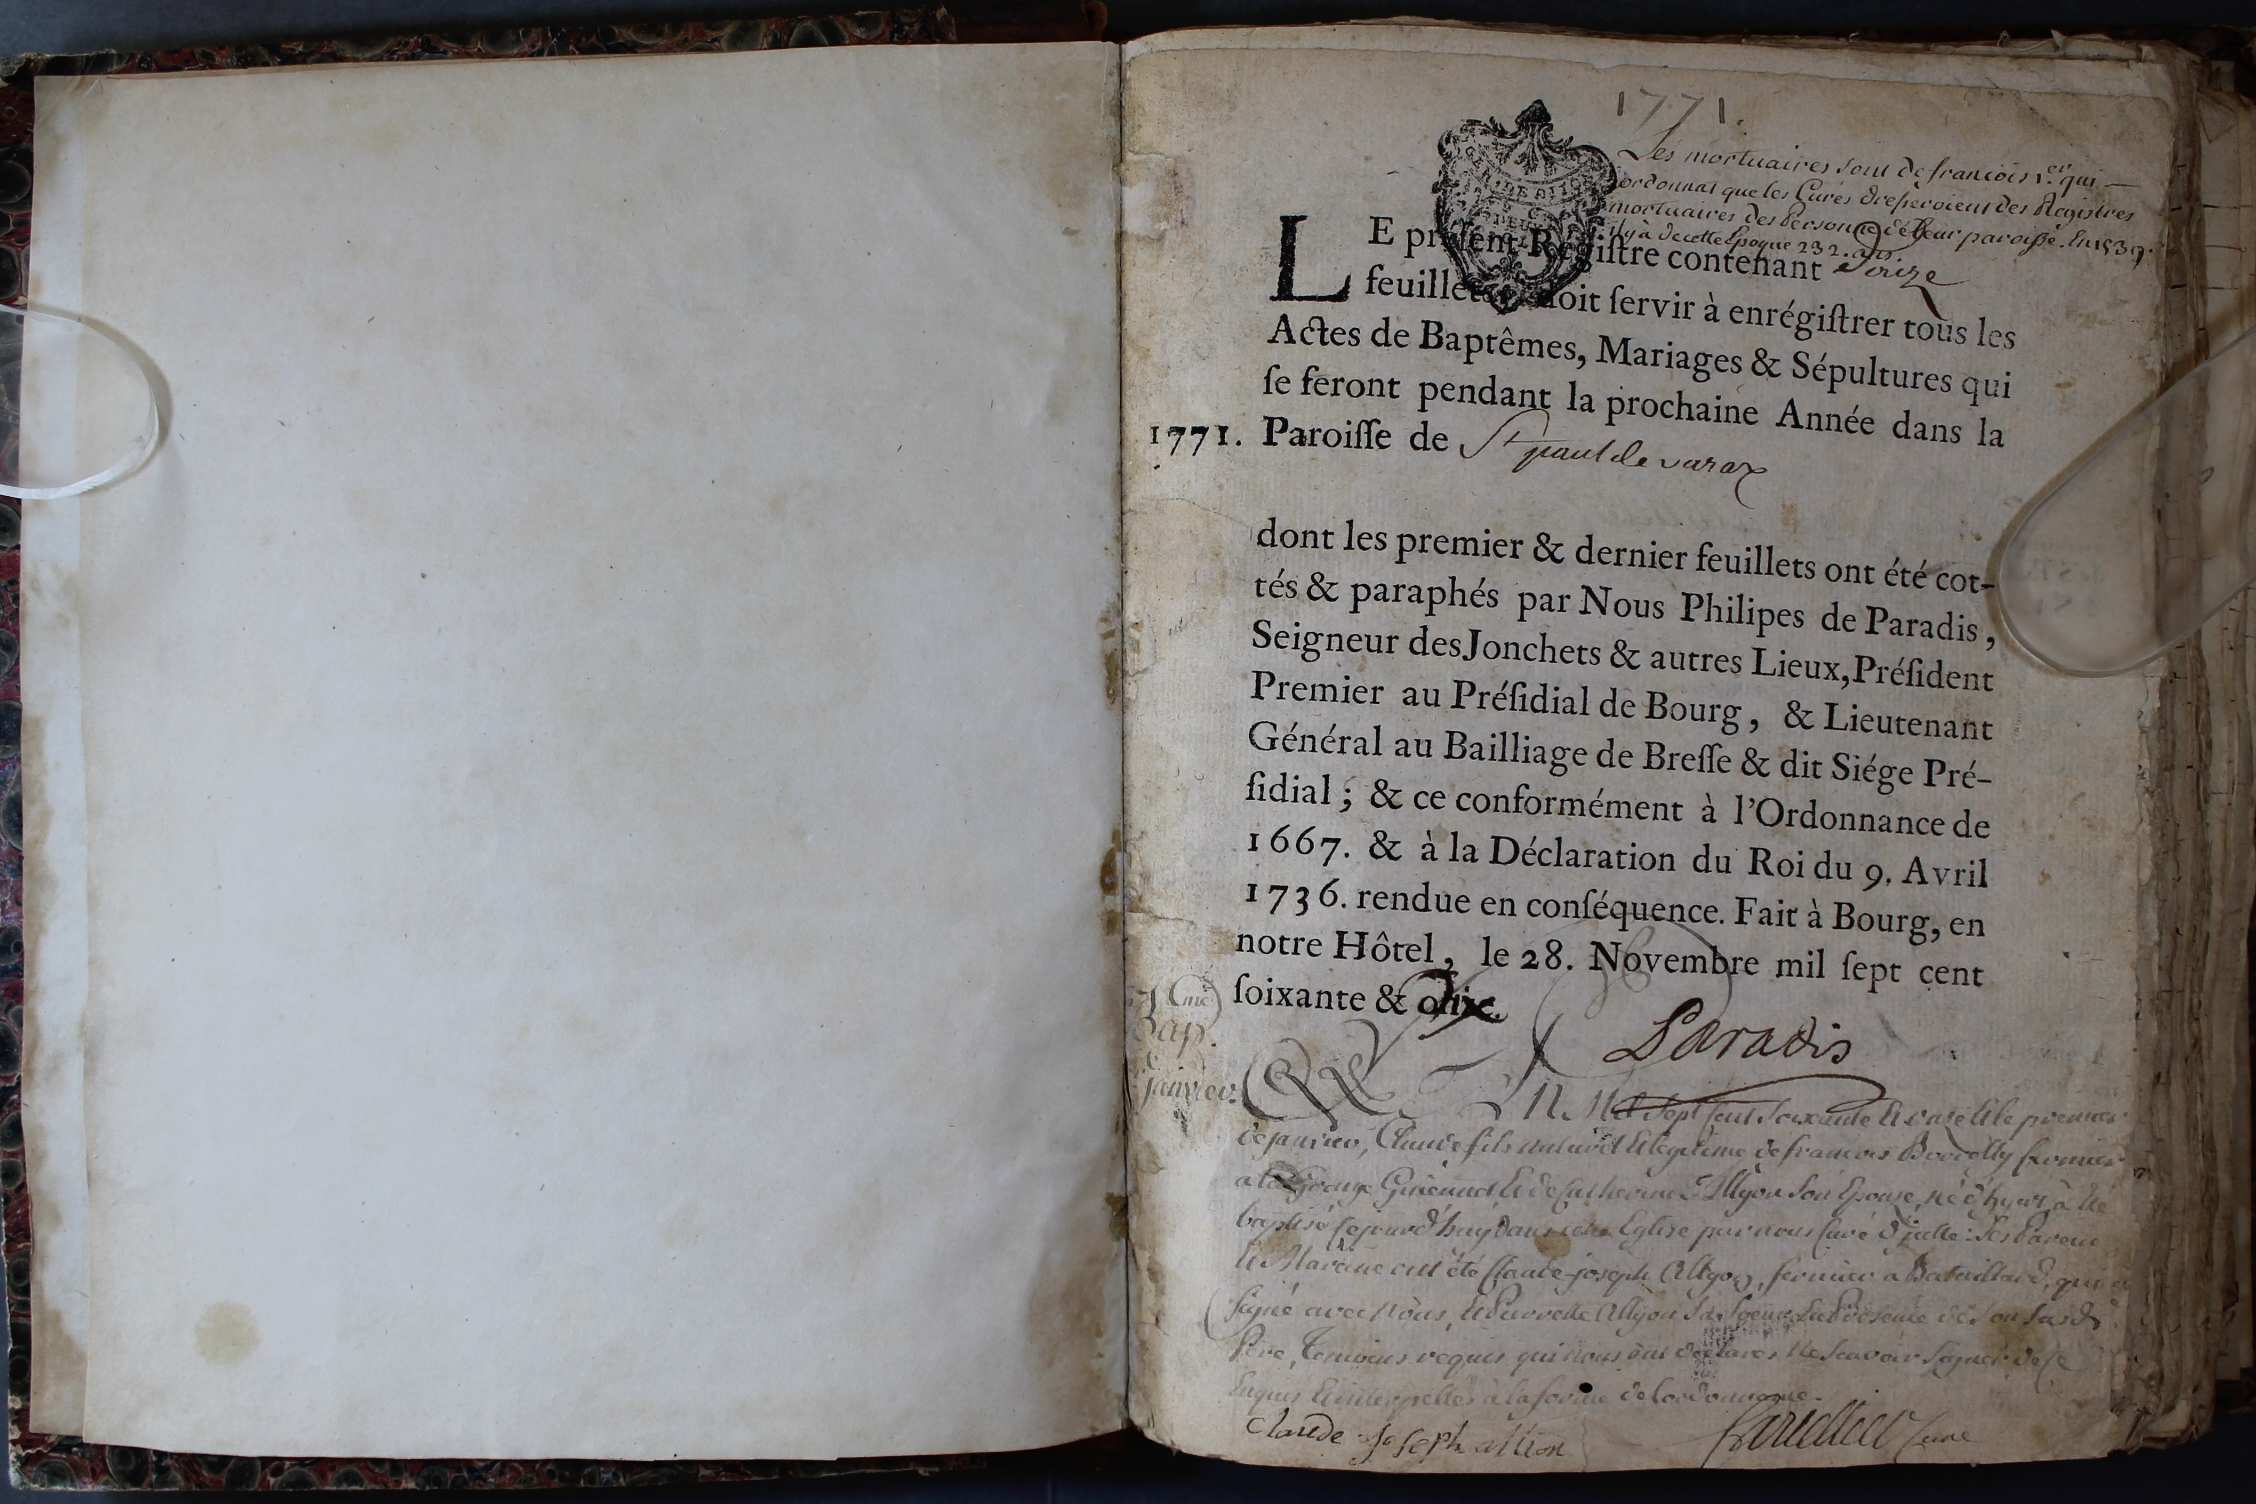 1771.
Les mortuaires sont de francois 1.er qui
ordonnat que les Curés dreseroient des Registres
mortuaires des Personne de leur paroisse. En 1539.
il y à de cette Epoque 232. ans.
LE présent Regiſtre contenant Onze
feuillets, doit ſervir à enrégiſtrer tous les
Actes de Baptêmes, Mariages & Sépultures qui
ſe feront pendant la prochaine Année dans la
1771. Paroiſſe de St paul de varax
dont les premier & dernier feuillets ont été cot-
tés & paraphés par Nous Philipes de Paradis,
Seigneur des Jonchets & autres Lieux, Préſident
Premier au Préſidial de Bourg, & Lieutenant
Général au Bailliage de Breſſe & dit Siége Pré-
ſidial; & ce conformément à l'Ordonnance de
1667. & à la Déclaration du Roi du 9. Avril
1736. rendue en conſéquence. Fait à Bourg, en
notre Hôtel, le 28. Novembre mil ſept cent
ſoixante & dix.
Paradis
Bap.
Janvier.
Mil Sept Cent Soixante et onze et le premier
de janvier, Claude fils naturel et légitime de francois Borrelly fermier
a la Grange et de Catherine Allyon Son Epouse, né d'hyer, à été
baptisé cejourd'huy dans cette Eglise par nous Curé d'jcelle: Ses Parein
et Mareine ont été Claude-joseph Allyon, fermier a Bataillard, qui a
signé avec Nous, et Pierrette Allyon Sa Soeur en Présence de Son dit
Pere, Temoins requis qui nous ont déclarés ne Scavoir Signer de ce
Enquis et interpellés à la forme de l'ordonnance.
Claude joseph allion
Curé